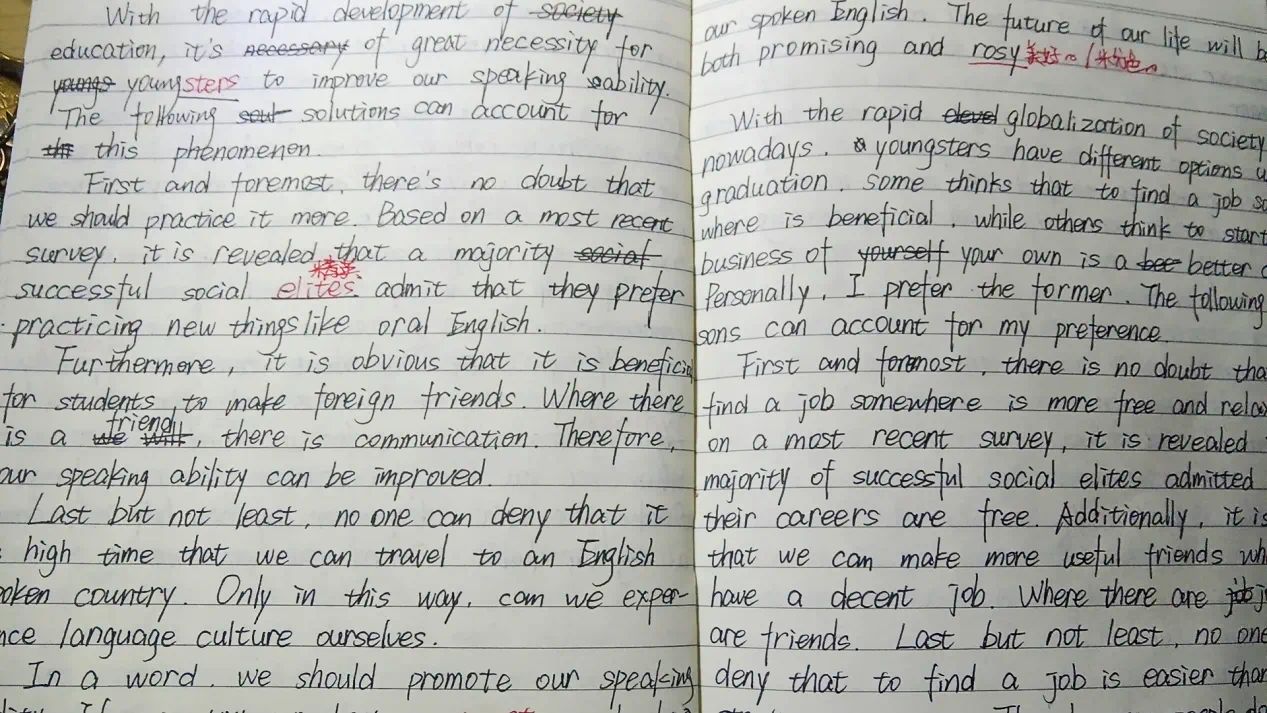 With the rapid development of society
education, it's necessary of great necessity for
youngs youngsters to improve our speaking ability.
The following solutions can account for
this phenomenon.
First and foremost, there's no doubt that
we should practice it more. Based on a most recent
survey, it is revealed that a majority social
精英
successful social elites admit that they prefer
practicing new things like oral English.
Furthermore, it is obvious that it is beneficial
for students to make foreign friends. Where there
friend
is a we will, there is communication. Therefore,
our speaking ability can be improved.
Last but not least, no one can deny that it
high time that we can travel to an English
oken country. Only in this way, can we exper-
nce language culture ourselves.
In a word, we should promote our speaking
our spoken English. The future of our life will be
both promising and rosy 美好~/米尤色~
With the rapid devel globalization of society
nowadays, youngsters have different options
graduation. Some thinks that to find a job so
where is beneficial, while others think to start
business of yourself your own is a bee better
Personally, I prefer the former. The following
sons can account for my preference.
First and foremost, there is no doubt tha
find a job somewhere is more free and relax
on a most recent survey, it is revealed
majority of successful social elites admitted
their careers are free. Additionally, it is
that we can make more useful friends wh
have a decent job. Where there are job
are friends. Last but not least, no one
deny that to find a job is easier than